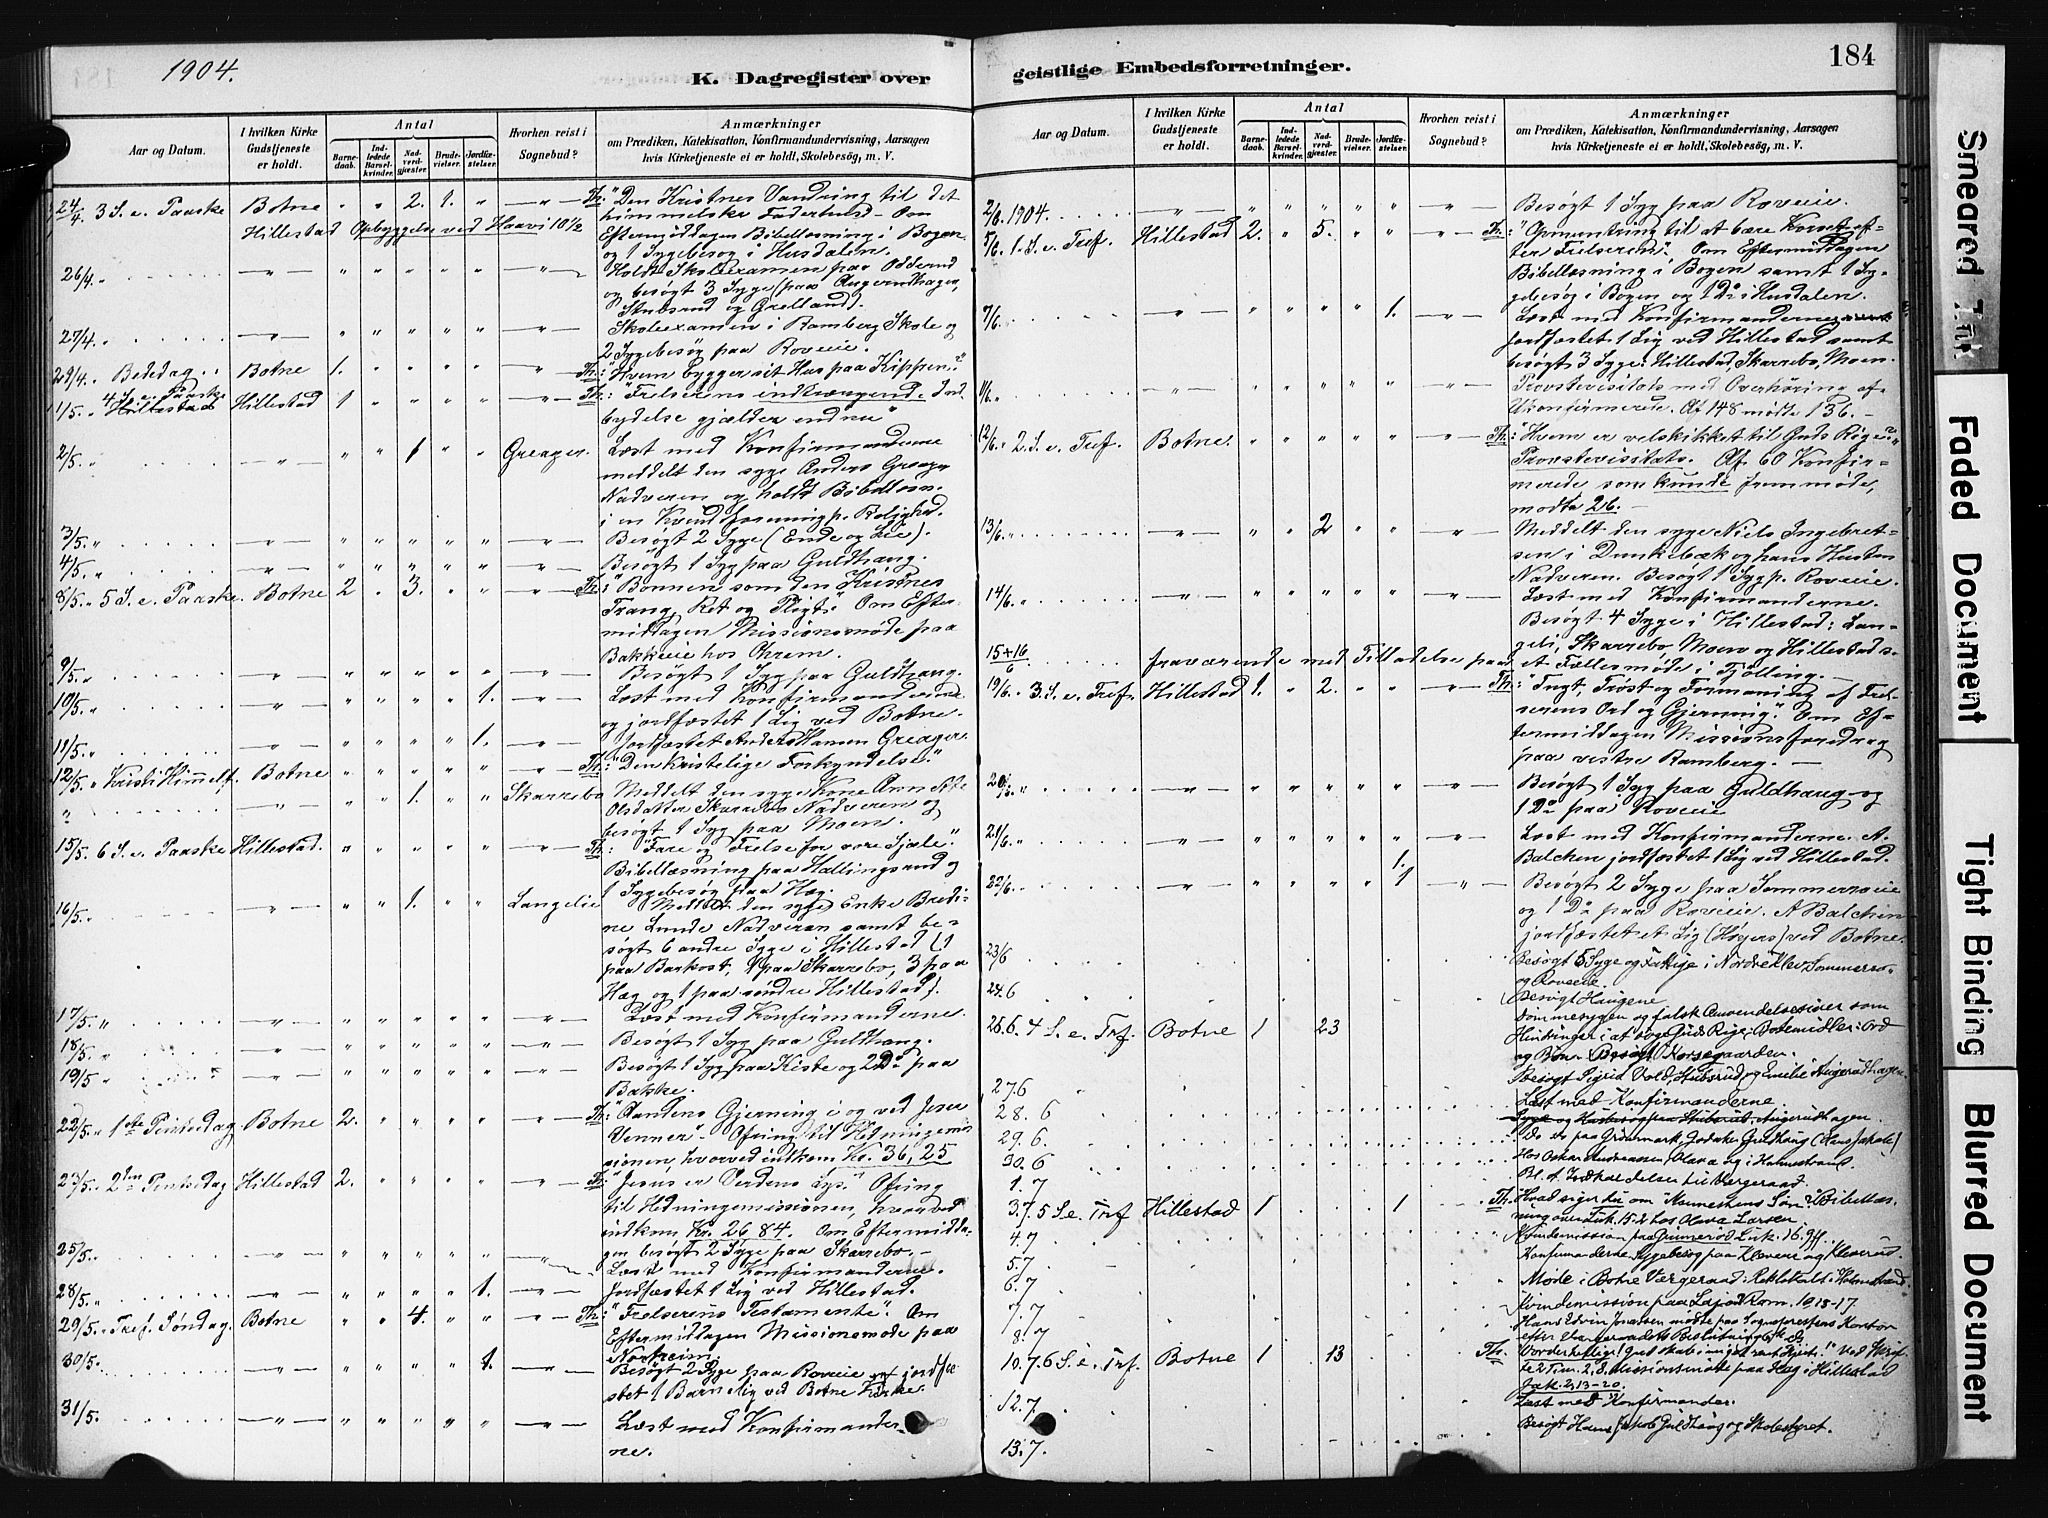 1904.
K. Dagregister over
Aar og Datum.
I hvilken Kirke Gudstjeneste er holdt.
Antal
Barne-daab.
Ind-ledede Barsel-kvinder.
Nad-verd-gjæster.
Brude-vielser.
Jordfæ-stelser.
Hvorhen reist i Sognebud?
Anmærkninger
om Prædiken, Katekisation, Konfirmandundervisning, Aarsagen
hvis Kirketjeneste ei er holdt, Skolebesøg, m. V.
24/4 3 S. e. Paaske Botne " " 2. 1. " —"— Th: "Den Kristnes Vandring til det
himmelske Faderhus" – Om
Hillestad Opbyggelse ved Haavi 10 1/2 Eftermiddagen Bibellæsning i Bogen
og 1 Sygebesøg i Husdalen.
26/4. " —"— " " " " " —"— Holdt Skoleexamen paa Odderud
og besøgt 3 Syge (paa Angerudhagen,
Stubsrud og Grelland).
27/4. —"— " " " " " —"— Skoleexamen i Ramberg Skole og
2 Sygebesøg paa Roveie.
29/4. " Bededag Botne 1. " " " " " Th: "Hvem bygger sit Hus paa Klippen?"
1/5. " 4 S. e. Paaske Hillestad Hillestad 1 " " " " —"— Th: "Frelserens indtrængende Ind
bydelse gjælder endnu"
2/5. " —"— " " 1 " " Greager. Læst med Konfirmanderne
meddelt den syge Anders Greager
Nadveren og holdt Bibellæsn.
i en Kvindeforening p. Rolighed.
3/5. " —"— " " " " " —"— Besøgt 2 Syge (Ende og Lie).
4/5. " —"— " " " " " —"— Besøgt 1 Syg paa Guldhaug.
8/5. " 5 S. e. Paaske. Botne 2 " 3. " " —"— Th: "Bønnen som den Kristnes
Trang, Ret og Pligt." Om Efter-
middagen Missionsmøde paa
Bakkeeie hos Ohrem.
9/5. " —"— " " " " " —"— Besøgt 1 Syg paa Guldhaug.
10/5. " —"— " " " " 1. —"— Læst med Konfirmanderne
og jordfæstet 1 Lig ved Botne.
11/5. " —"— " " " " 1. —"— Jordfæstet Anders Hansen Greager.
12/5. " Kristi Himmelf. Botne " " " " " —"— Th: "Den kristelige Forkyndelse."
" —"— " " 1. " " Skarrebo Meddelt den syge Kone Ann
Olsdatter Skarrebo Nadveren og
besøgt 1 Syg paa Moen.
15/5. 6 S. e. Paaske Hillestad. " " " " " —"— Th: "Fare og Frelse for vore Sjæle."
Bibellæsning paa Hallingsrud og
1 Sygebesøg paa Hæg.
16/5. " —"— " " 1. " " Langelie Meddelt den syge Enke Bredi-
ne Lunde Nadveren samt be-
søgt 6 andre Syge i Hillestad (1
paa Barkost, 1 paa Skarrebo, 3 paa
Hæg og 1 paa søndre Hillestad).
17/5. " —"— " " " " " —"— Læst med Konfirmanderne.
18/5. —"— " " " " " —"— Besøgt 1 Syg paa Guldhaug.
19/5 —"— " " " " " —"— Besøgt 1 Syg paa Kiste og 2 Do paa
Bakke.
22/5. " 1ste Pintsedag Botne 2. " " " " —"— Th: "Aandens Gjerning i og ved Jesu
Venner". Ofring til Hedningemis
sionen, hvorved indkom Kr. 36,25
23/5. " 2den Pintsedag Hillestad 2. " " " " —"— Th: "Jesus er Verdens Lys." Ofring
til Hedningemissionen, hvorved
indkom Kr. 26,84. Om Eftermidda-
gen besøgt 2 Syge paa Skarrebo. –
25/5. —"— " " " " " —"— Læst med Konfirmanderne.
28/5. " —"— " " " " 1. —"— Jordfæstet 1 Lig ved Hillestad.
29/5. " Tref. Søndag. Botne " " 4. " " —"— Th: "Frelserens Testamente". Om
Eftermiddagen Missionsmøde paa
Nordheim.
30/5. —"— " " " " 1. —"— Besøgt 2 Syge paa Roveie og jordfæ
stet 1 Barnelig ved Botne Kirke.
31/5. —"— " " " " " —"— Læst med Konfirmander
ne.
geistlige Embedsforretninger.
184
Aar og Datum.
I hvilken Kirke Gudstjeneste er holdt.
Antal
Barne-daab.
Ind-ledede Barsel-kvinder.
Nad-verd-gjæster.
Brude-vielser.
Jordfæ-stelser.
Hvorhen reist i Sognebud?
Anmærkninger
om Prædiken, Katekisation, Konfirmandundervisning, Aarsagen
hvis Kirketjeneste ei er holdt, Skolebesøg, m. V.
2/6. 1904. —"— " " " " " —"— Besøgt 1 Syg paa Roveie.
5/6. 1. S. e. Tref. Hillestad 2. " 5. " " —"— Th: "Opmuntring til at bære Korset ef-
ter Frelseren." Om Eftermiddagen
Bibellæsning i Bogen samt 1 Sy-
gebesøg i Bogen og 1 Do i Husdalen.
7/6. —"— " " " " 1. —"— Læst med Konfirmanderne
jordfæstet 1 Lig ved Hillestad samt
besøgt 3 Syge: Hillestad, Skarrebo, Moen.
11/6. " —"— " " " " " —"— Provstevisitats med Overhøring af
Ukonfirmerede. Af 148 mødte 136. –
12/6. " 2. S. e. Tref. Botne. " " " " " —"— Th: "Hvem er velskikket til Guds Rige?"
Provstevisitats. Af 60 Konfir-
merede som kunde fremmøde,
mødte 26. –
13/6. " —"— " " 2 " " —"— Meddelt den syge Niels Ingebret-
sen i Dunkebæk og hans Hustru
Nadveren. Besøgt 1 Syg p. Roveie.
14/6. " —"— " " " " " —"— Læst med Konfirmanderne.
Besøgt 4 Syge i Hillestad: Lan-
geli, Skarrebo, Moen og Hillestad s.
15+16/6 fraværende med Tilladelse paa et Fællesmøde i Tjølling. –
19/6. " 3. S. e. Tref. Hillestad 1. " 2. " " —"— Th: "Tugt, Trøst og Formaning af Frel-
serens Ord og Gjerning." Om Ef-
termiddagen Missionsforedrag
paa vestre Ramberg. –
20/6. " —"— " " " " " —"— Besøgt 1 Syg paa Guldhaug og
1 Do paa Roveie
21/6. " —"— " " " " 1. —"— Læst med Konfirmanderne. A.
Balchen jordfæstet 1 Lig ved Hillestad.
22/6. —"— " " " " 1 —"— Besøgt 2 Syge paa Sommerroeie
og 1 Do paa Roveie. A Balchen
jordfæstet et Lig (Høyers) ved Botne.
23/6 Besøgt 5 Syge og Fattige i Nordre Klev, Sommerro-
og Roveie.
24.6 Besøgt Haugene
26.6. 4 S. e. Trf. Botne 1 23 Dommesygen og falsk Anvendelsesiver som
Hindringer i at søge Guds Rige. Botemidler: Ord
og Bøn. Besøgt Korsegaarden.
27.6 Besøgt Sigrid Vold, Stubsrud og Emilie Angerudhagen.
28. 6 Læst med Konfirmanderne.
29. 6. Do do paa Grønmark, Godaker, Guldhaug (Hans Jakob)
30. 6 Hos Oskar Andreassen, Olava og i Holmestrand.
1. 7 Bl. A. Indkaldelser til Værgeraad
3.7. 5 S. e. Trf Hillestad 1 1 Th. "Hvad siger du om Menneskens Søn?" Bibellæs-
ning over Luk. 15.2 hos Olava Larsen.
4.7 Kvindemission paa Gunnerød Luk. 16. 9ff.
5.7 Konfirmanderne, Sygebesøg paa Kleveie og Kleverud.
6.7 Møde i Botne Værgeraad: Rektstalt i Holmestrand.
7.7 Kvindemission paa Lajord Rom. 10, 13-17.
8.7 Hans Edvin Josefsen mødte paa Sognepræstens Kontor
efter Værgeraadets Beslutning
10. 7. 6 S. e. Trf. Botne 1 13 Th.
Jak. 2, 13–20.
12.7. Læst med Konfirmander.
13.7. Besøgt Hans Jakob Guldhaug og Skolestyret.
Smeared Ink
Faded Document
Tight Binding
Blurred Document